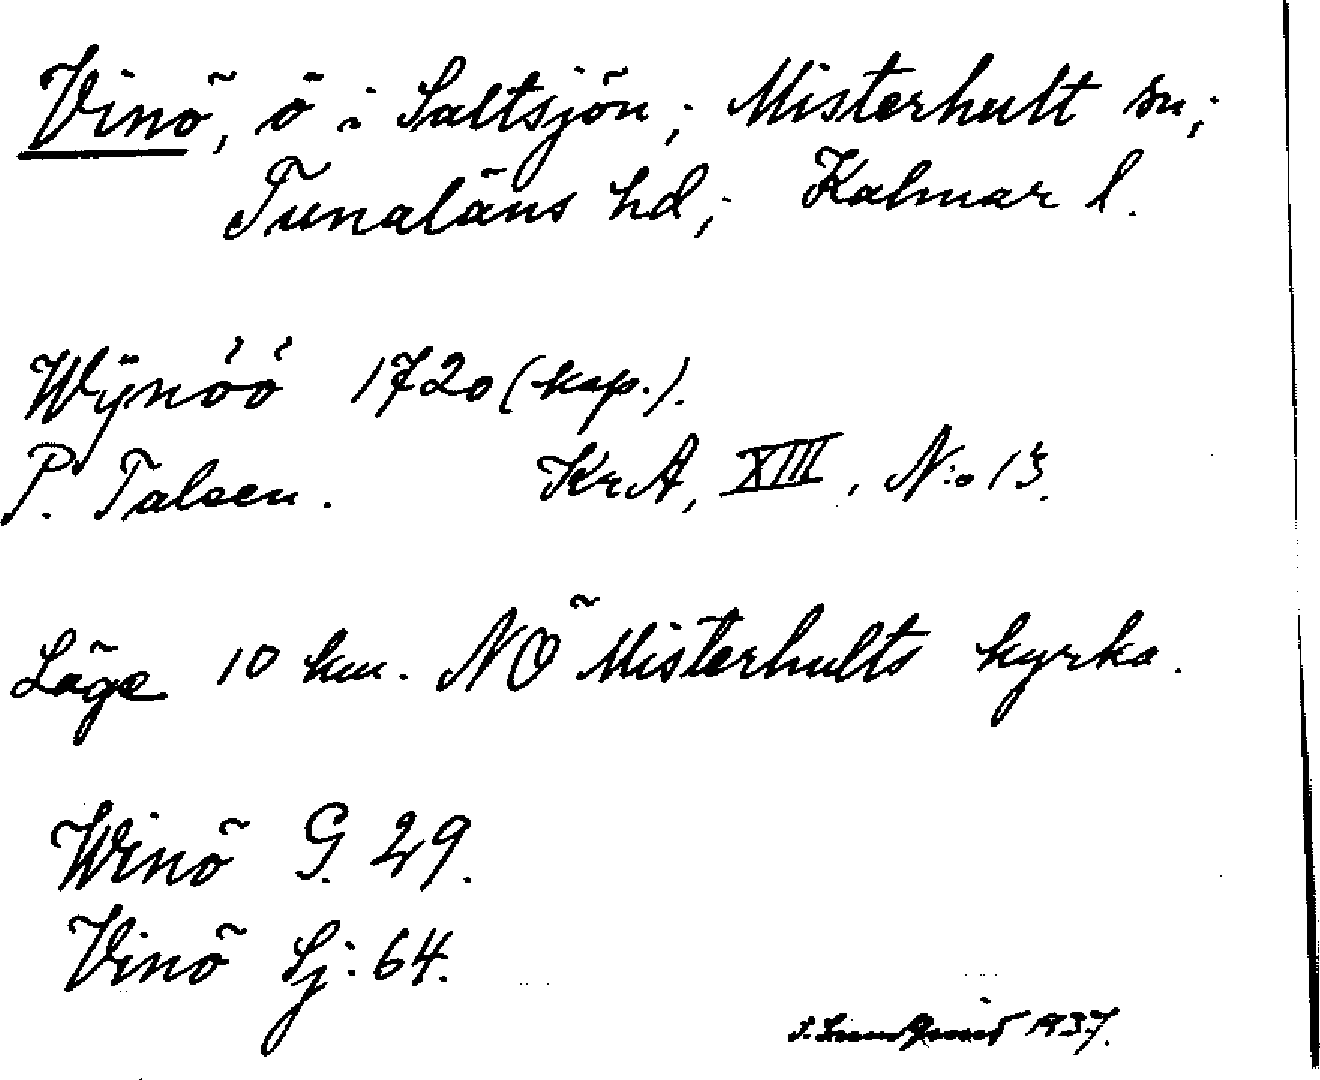 Vinö, ö i Saltsjön; Misterhult sn;
Tunaläns hd; Kalmar l.
Wÿnóó 1720 (kop.).
P. Talsen. KrA, XIII, N:o 13.
Läge 10 km. NÖ Misterhults kyrka.
Winö G. 29.
Vinö Sj: 64.
S. Lundqvist 1937.